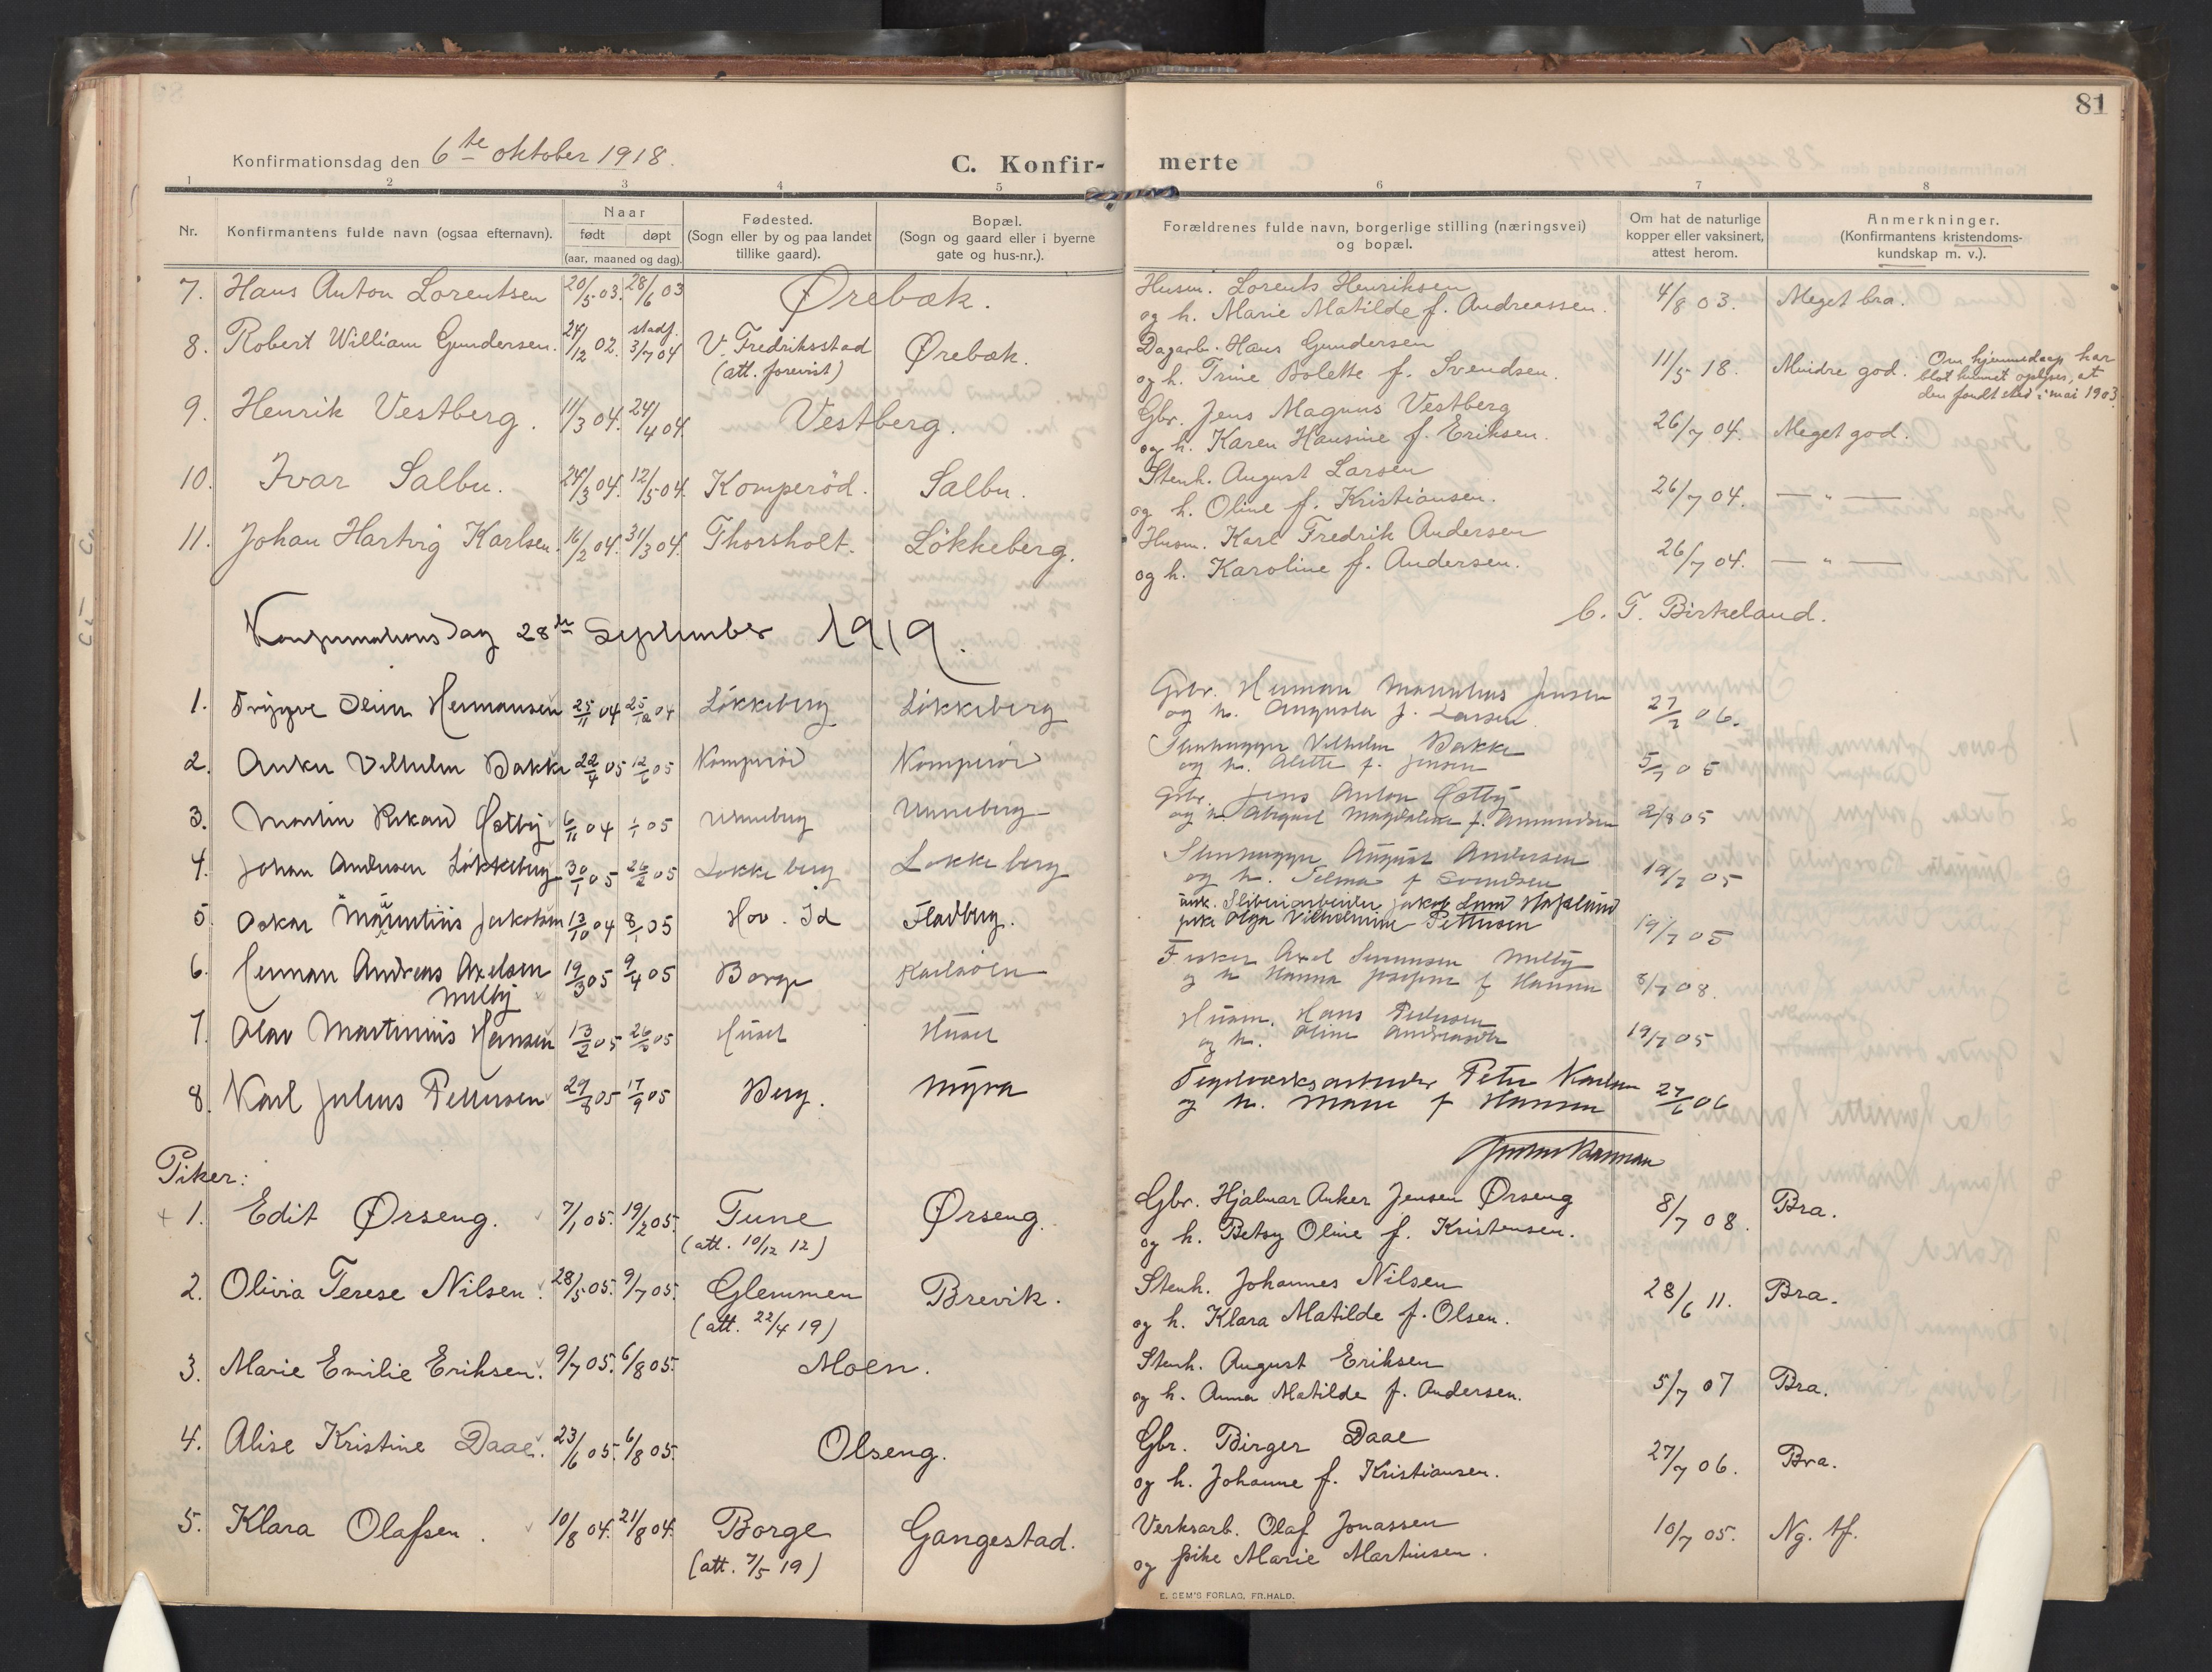 81
Konfirmationsdag den 6te oktober 1918.
C. Konfir-
merte
1 2 3 4 5 6 7 8
Nr. Konfirmantens fulde navn (ogsaa efternavn). Naar født døpt (aar, maaned og dag). Fødested. (Sogn eller by og paa landet tillike gaard). Bopæl. (Sogn og gaard eller i byerne gate og hus-nr.). Forældrenes fulde navn, borgerlige stilling (næringsvei) og bopæl. Om hat de naturlige kopper eller vaksinert, attest herom. Anmerkninger. (Konfirmantens kristendoms-kundskap m. v.).
7. Hans Anton Lorentsen 20/5 03. 28/6 03 Ørebæk. Husm. Lorents Henriksen
og h. Marie Matilde f. Andreassen. 4/8 03. Meget bra.
8. Robert William Gundersen. 24/12 02. stadf. 3/7 04 V. Fredriksstad (att. forevist) Ørebæk. Dagarb. Hans Gundersen
og h. Trine Bolette f. Svendsen. 11/5 18. Mindre god. Om hjemmedaap har
blot kunnet oplyses, at
den fandt sted i mai 1903.
9. Henrik Vestberg. 11/3 04. 24/4 04. Vestberg. Gbr. Jens Magnus Vestberg
og h. Karen Hansine f. Eriksen. 26/7 04. Meget god.
10. Ivar Salbu. 24/3 04. 12/5 04. Komperöd. Salbu. Stenh. August Larsen
og h. Oline f. Kristiansen. 26/7 04. — " —
11. Johan Hartvig Karlsen. 16/2 04. 31/3 04. Thorsholt. Lökkeberg. Husm. Karl Fredrik Andersen
og h. Karoline f. Andersen. 26/7 04. — " —
C. T. Birkeland.
Konfirmationsdag 28de September 1919.
1. Trygve Hermansen 25/11 04 25/12 04 Lökkeberg Lökkeberg Gbr. Herman Jensen
og h. Augusta f. Larsen. 27/7 06.
2. Anker Vilhelm Bakke 22/4 05 12/6 05 Komperöd Komperöd Stenhugger Vilhelm Bakke
og h. Alette f. Jensen 5/7 05
3. Martin Rikard Østby 6/11 04 1/1 05 Unneberg Unneberg Gbr. Jens Anton Østby
og h. Abigael Magdalene f. Amundsen 2/8 05
4. Johan Andersen Lökkeberg 30/1 05 26/2 05 Lökkeberg Lökkeberg Stenhugger August Andersen
og h. Selma f. Svendsen 19/7 05
5. Oskar Mauritius Jakobsen 13/10 04 8/1 05 Hov. Id Fladberg. ungk. Sliberiarbeider Jakob Lund Hafslund
pike Olga Vilhelmine Pettersen 19/7 05
6. Herman Andreas Axelsen
Melby 19/3 05 9/4 05 Borge Karlsöen Fisker Axel Simensen Melby
og h. Hanna Josefine f. Hansen 8/7 08.
7. Olav Martinius Hansen 13/2 05 26/3 05 Huset Huset Husm. Hans Pedersen
og h. Oline Andreasdtr 19/7 05
8. Karl Julius Pettersen 29/8 05 17/9 05 Berg. Myra Teglverksarbeider Peter Karlsen
og h. Marie f. Hansen 27/6 06
Piker:
+ 1. Edit Ørseng. 7/1 05. 19/2 05. Tune (att. 10/12 12) Ørseng. Gbr. Hjalmar Anker Jensen Ørseng
og h. Betsy Oline f. Kristensen. 8/7 08. Bra.
2. Olivia Terese Nilsen. 28/5 05. 9/7 05. Glemmen (att. 22/4 19) Brevik. Stenh. Johannes Nilsen
og h. Klara Matilde f. Olsen. 28/6 11. Bra.
3. Marie Emilie Eriksen. 9/7 05. 6/8 05. Moen. Stenh. August Eriksen
og h. Anna Matilde f. Andersen. 5/7 07 Bra.
4. Alise Kristine Daae. 23/6 05. 6/8 05. Olseng. Gbr. Birger Daae
og h. Johanne f. Kristiansen. 27/7 06. Bra.
5. Klara Olafsen. 10/8 04. 21/8 04. Borge (att. 7/5 19) Gangestad. Verksarb. Olaf Jonassen
og pike Marie Martinsen. 10/7 05. Ng. tf.
E. SEM'S FORLAG, FR.HALD.